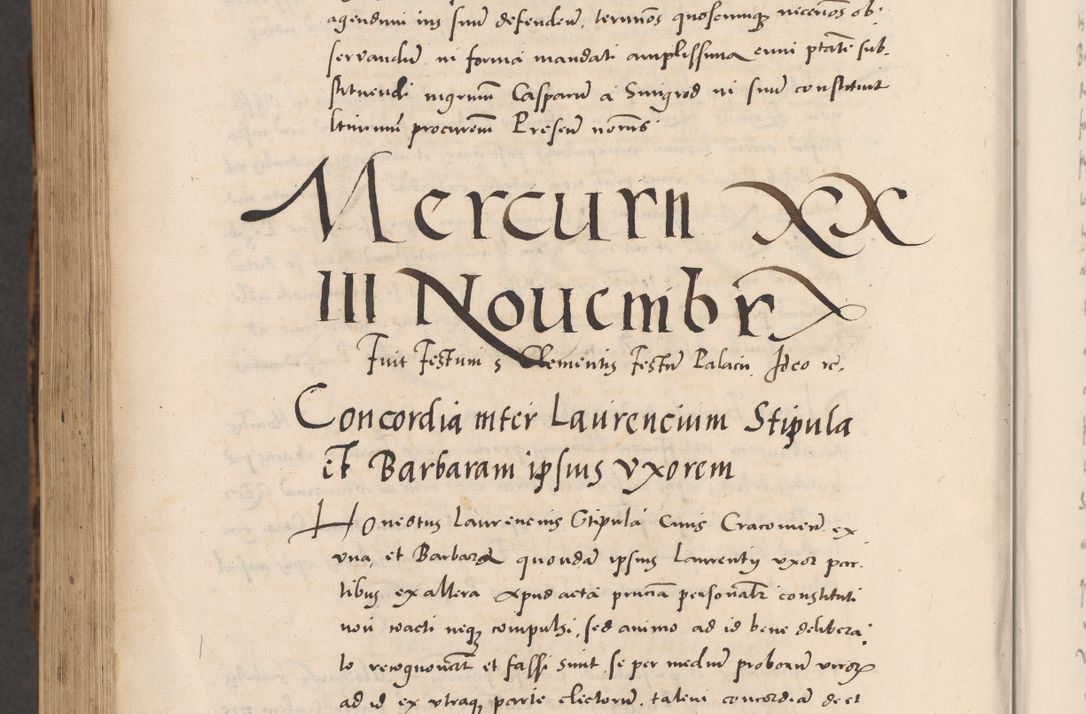 agendum ius suum defendendum, terminos quoscunque necessarios ob:
servandum in forma mandati amplissima cum ptate sub
stituendi magnum Casparum a Smigrod in suum constituit
ltimum procurem Presen norns
Mercurii XX
III Novembr
Fuit Festum s Clementis Festum Palacii, Ideo re.
Concordia inter Laurencium Stipula
et Barbaram ipsius vxorem
Honestus Laurencius Stipula Civis Cracovien ex
vna, et Barbara quondam ipsius Laurentij vxor par:
tibus ex altera Apud acta personalr constituti
non coacti neque compulsi, sed animo ad id bene delibera:
to recognoverunt et fassi sunt, se per medium proborum virorum
ad id ex vtraque parte electorum, talem concordiam de et